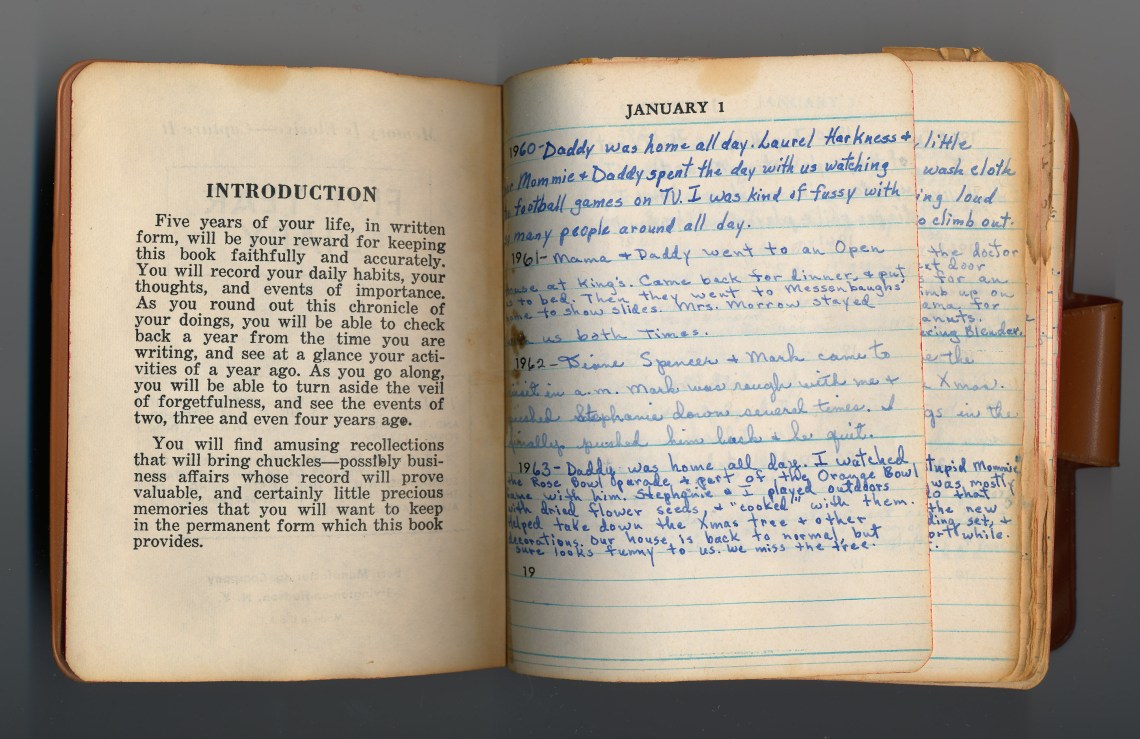 INTRODUCTION
Five years of your life, in written
form, will be your reward for keeping
this book faithfully and accurately.
You will record your daily habits, your
thoughts, and events of importance.
As you round out this chronicle of
your doings, you will be able to check
back a year from the time you are
writing, and see at a glance your acti-
vities of a year ago. As you go along,
you will be able to turn aside the veil
of forgetfulness, and see the events of
two, three and even four years ago.
You will find amusing recollections
that will bring chuckles—possibly busi-
ness affairs whose record will prove
valuable, and certainly little precious
memories that you will want to keep
in the permanent form which this book
provides.
JANUARY 1
1960-Daddy was home all day. Laurel Harkness &
Mommie & Daddy spent the day with us watching
football games on TV. I was kind of fussy with
many people around all day.
1961- Mama & Daddy went to an Open
House at King's. Came back for dinner, & put
us to bed. Then they went to Messenbaughs'
to show slides. Mrs. Morrow stayed
us both times.
1962- Diane Spencer & Mark came to
visit in a.m. Mark was rough with me &
pushed Stephanie down several times. I
finally pushed him back & he quit.
1963- Daddy was home all day. I watched
the Rose Bowl parade & part of the Orange Bowl
game with him. Stephanie & I played outdoors
with dried flower seeds, & "cooked" with them.
Helped take down the Xmas tree & other
decorations. Our house is back to normal, but
sure looks funny to us. We miss the tree.
19
little
wash cloth
ing loud
o climb out.
the doctor
et door
for an
imb up on
ama for
anuts.
ering Blender.
the
Xmas.
gs in the
tupid Mommie
was mostly
o that
the new
ding set, &
ort while.